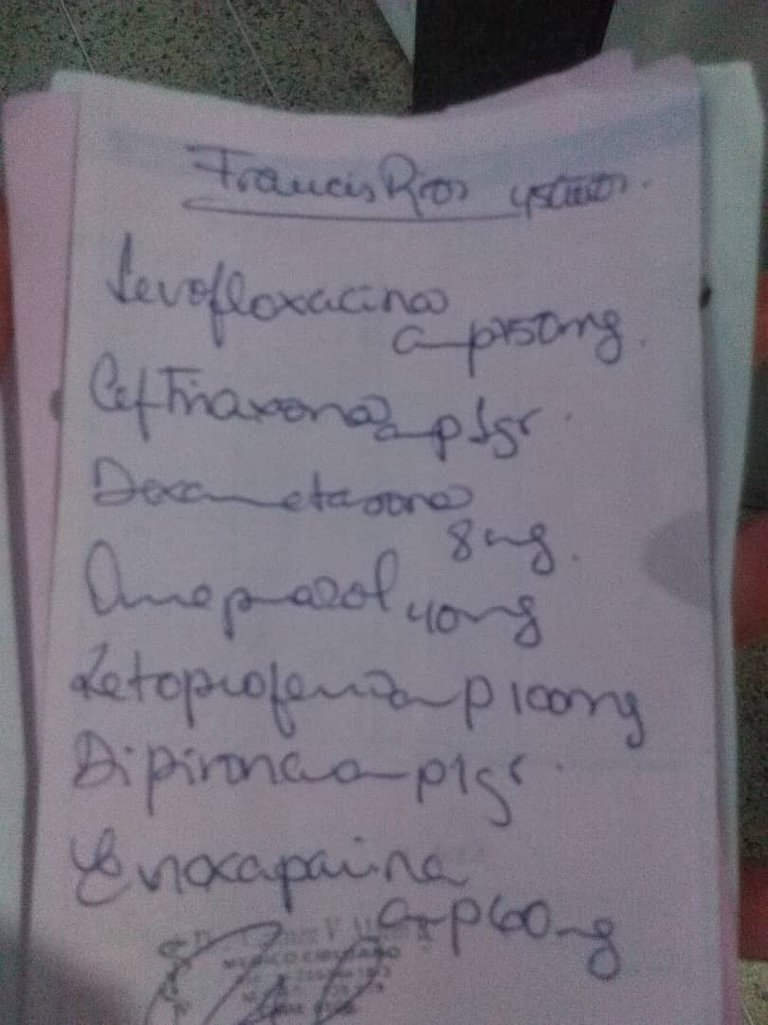 Francis Rios
Levofloxacina
amp 750mg.
Ceftriaxona amp 1gr.
Dexametasona
8 mg.
Omeprazol 40mg
Ketoprofeno amp 100mg
Dipirona amp 1gr.
Enoxaparina
amp 60mg
MEDICO CIRUJANO